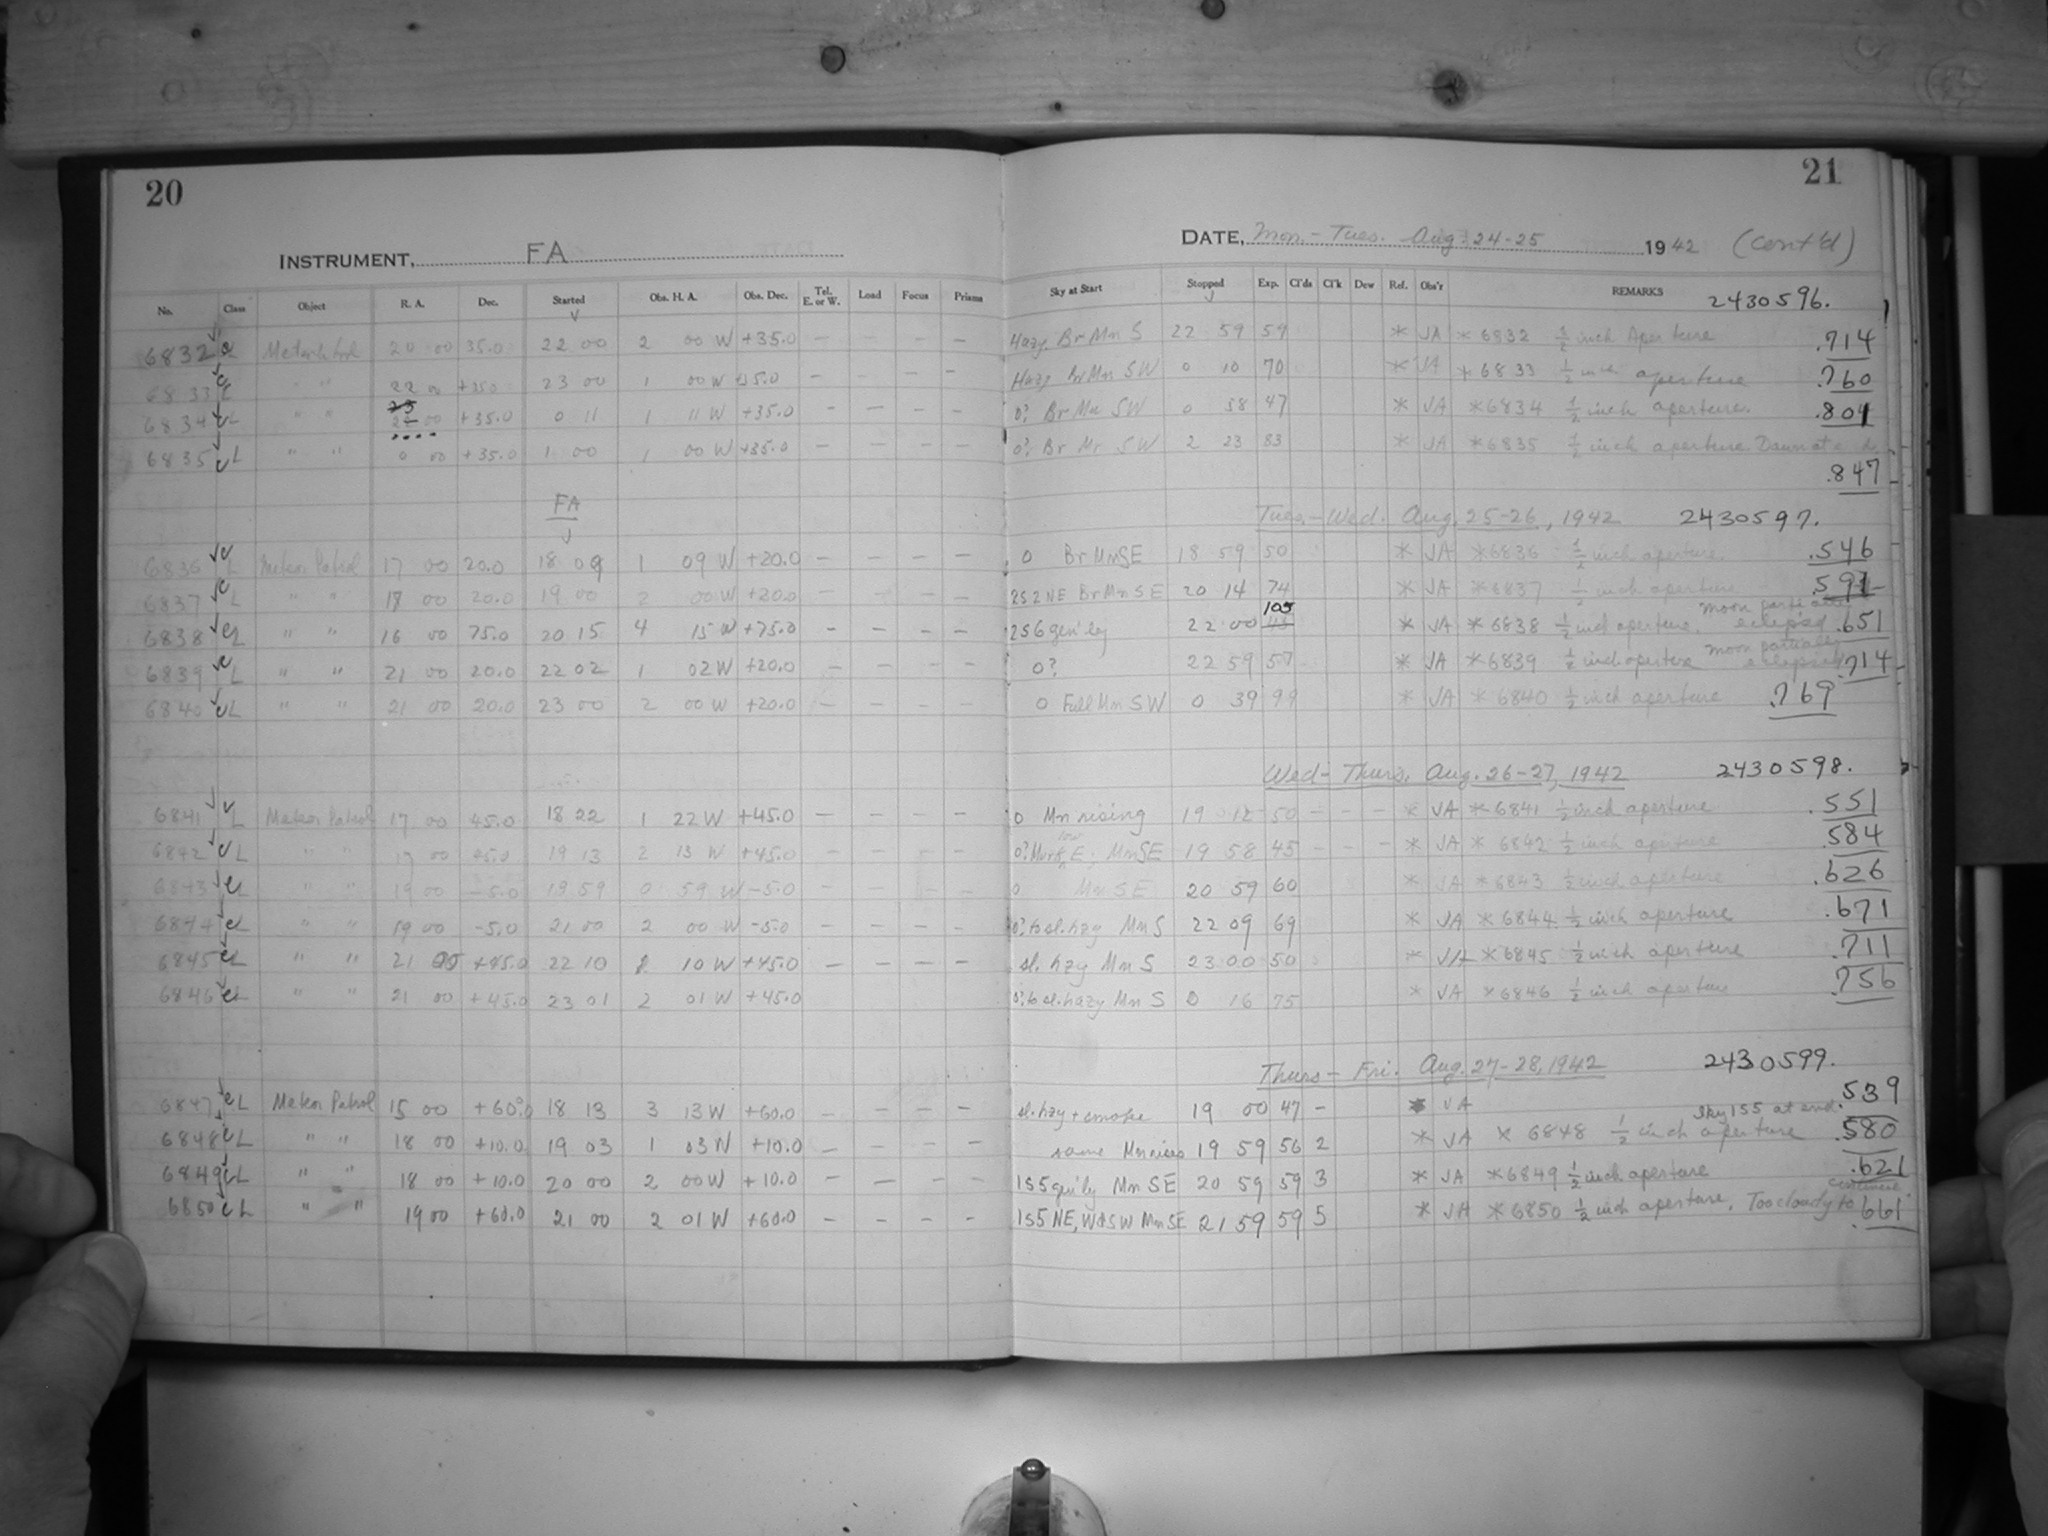 20
INSTRUMENT, FA
No. Class Object R. A. Dec. Started Obs. H. A. Obs. Dec. Tel. E. or W. Load Focus Prisms
6832 L 20 00 35.0 22 00 2 00 W +35.0 — — — —
6833 L " " 22 00 +35.0 23 00 1 00 W +35.0 — — — —
6834 L " " 23 00 +35.0 0 11 1 11 W +35.0 — — — —
6835 cL " " 0 00 +35.0 1 00 1 00 W +35.0 — — — —
FA
6836 cL Meteor Patrol 17 00 20.0 18 09 1 09 W +20.0 — — — —
6837 cL " " 18 00 20.0 19 00 2 00 W +20.0 — — — —
6838 cL " " 16 00 75.0 20 15 4 15 W +75.0 — — — —
6839 cL " " 21 00 20.0 22 02 1 02 W +20.0 — — — —
6840 cL " " 21 00 20.0 23 00 2 00 W +20.0 — — — —
6841 cL Meteor Patrol 17 00 45.0 18 22 1 22 W +45.0 — — — —
6842 cL " " 17 00 45.0 19 13 2 13 W +45.0 — — — —
6843 cL " " 19 00 -5.0 19 59 0 59 W -5.0 — — — —
6844 cL " " 19 00 -5.0 21 00 2 00 W -5.0 — — — —
6845 cL " " 21 00 +45.0 22 10 1 10 W +45.0 — — — —
6846 cL " " 21 00 +45.0 23 01 2 01 W +45.0
6847 cL Meteor Patrol 15 00 +60.0 18 13 3 13 W +60.0 — — — —
6848 cL " " 18 00 +10.0 19 03 1 03 W +10.0 — — — —
6849 cL " " 18 00 +10.0 20 00 2 00 W +10.0 — — — —
6850 cL " " 19 00 +60.0 21 00 2 01 W +60.0 — — — —
21
DATE, Mon. - Tues. Aug. 24-25 1942 (Cont'd)
Sky at Start Stopped Exp. Cl'ds Cl'k Dew Ref. Obs'r REMARKS 2430596.
Hazy. Br Mn S 22 59 59 * JA * 6832 ½ inch Aperture .714
Hazy Br Mn SW 0 10 70 * JA * 6833 ½ inch aperture .760
0? Br Mn SW 0 58 47 * JA * 6834 ½ inch aperture. .801
0? Br Mn SW 2 23 83 * JA * 6835 ½ inch aperture Dawn at end
.847
Tues. - Wed. Aug. 25-26, 1942 2430597.
0 Br Mn SE 18 59 50 * JA * 6836 ½ inch aperture .546
2S2 NE Br Mn SE 20 14 74 * JA * 6837 ½ inch aperture .591
105
moon partially
2S6 gen'ly 22 00 * JA * 6838 ½ inch aperture. eclipsed .651
moon partially
0? 22 59 57 * JA * 6839 ½ inch aperture eclipsed .714
0 Full Mn SW 0 39 99 * JA * 6840 ½ inch aperture .769
Wed - Thurs. Aug. 26-27, 1942 2430598.
0 Mn rising 19 12 50 — — — * JA * 6841 ½ inch aperture .551
low
0? Murk E; Mn SE 19 58 45 — — — * JA * 6842 ½ inch aperture .584
0 Mn SE 20 59 60 * JA * 6843 ½ inch aperture .626
0? to sl. hzy Mn S 22 09 69 * JA * 6844 ½ inch aperture .671
sl. hzy Mn S 23 00 50 * JA * 6845 ½ inch aperture .711
0? to sl. hazy Mn S 0 16 75 * JA * 6846 ½ inch aperture .756
Thurs - Fri. Aug. 27-28, 1942 2430599.
sl. hzy + smoke 19 00 47 — * JA .539
Sky 1S5 at end.
same Mn rises 19 59 56 2 * JA * 6848 ½ inch aperture .580
1S5 gen'ly Mn SE 20 59 59 3 * JA * 6849 ½ inch aperture .621
continue
1S5 NE, W & SW Mn SE 21 59 59 5 * JA * 6850 ½ inch aperture. Too cloudy to .661